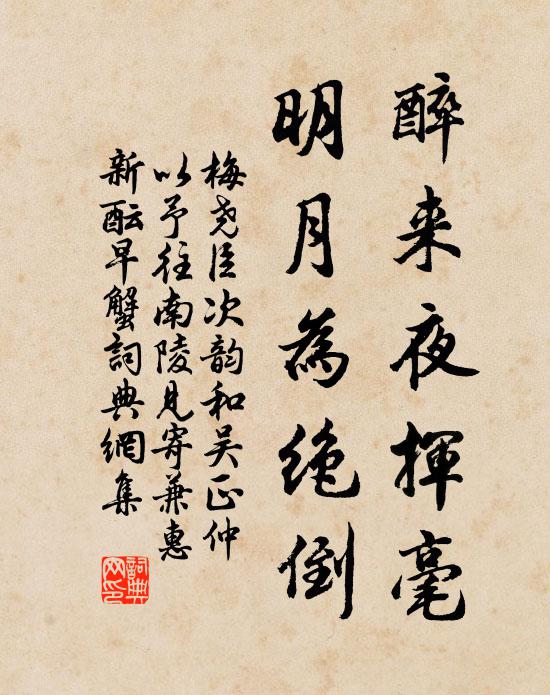 醉来夜揮毫
明月為絶倒
梅尧臣次韵和吴正仲
以予往南陵見寄兼惠
新酝早蟹詞典網集
詞典网印